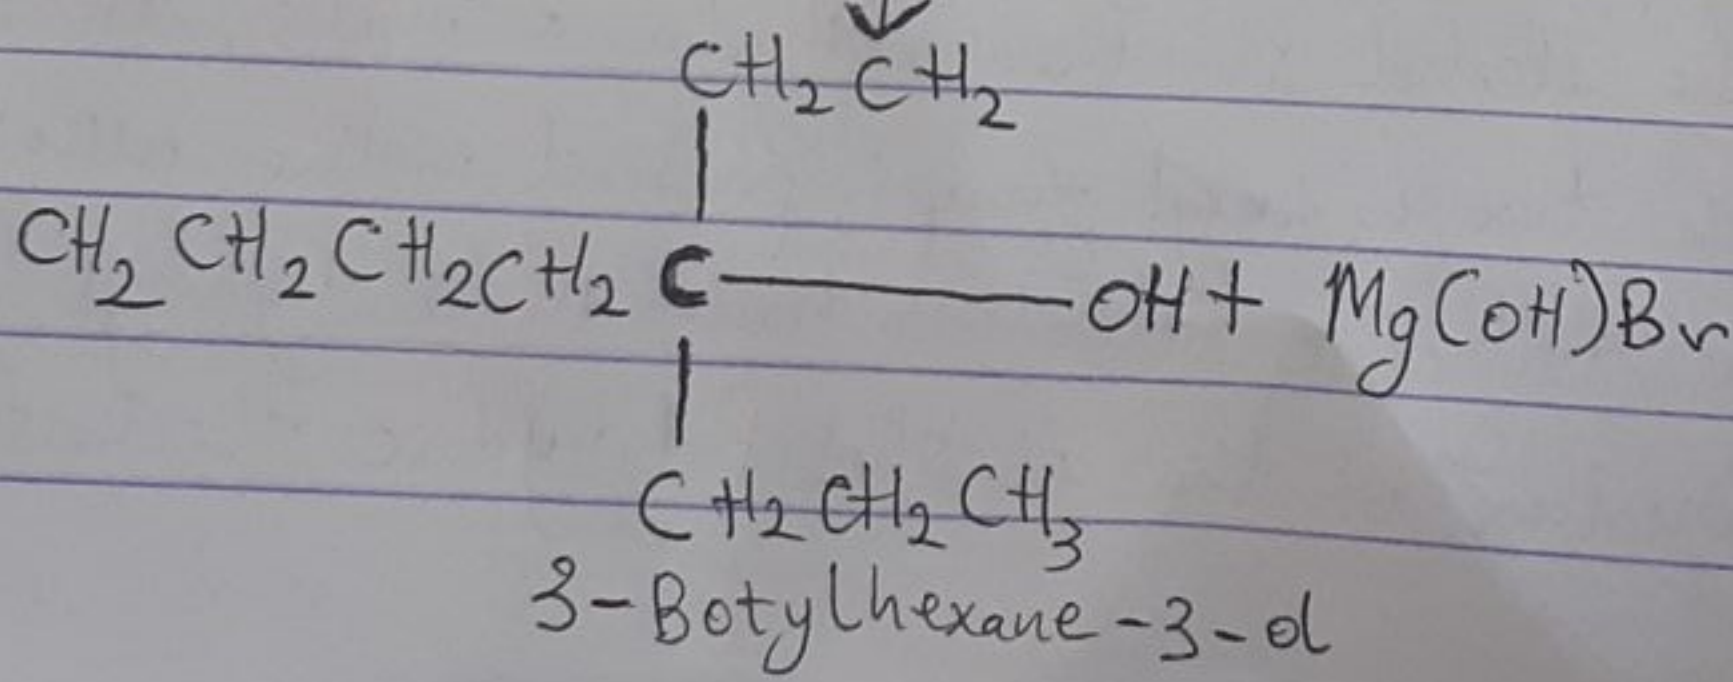 CH₂CH₂
CH₂CH₂CH₂CH₂C—OH + Mg(OH)Br
CH₂CH₂CH₃
3-Botylhexane-3-ol